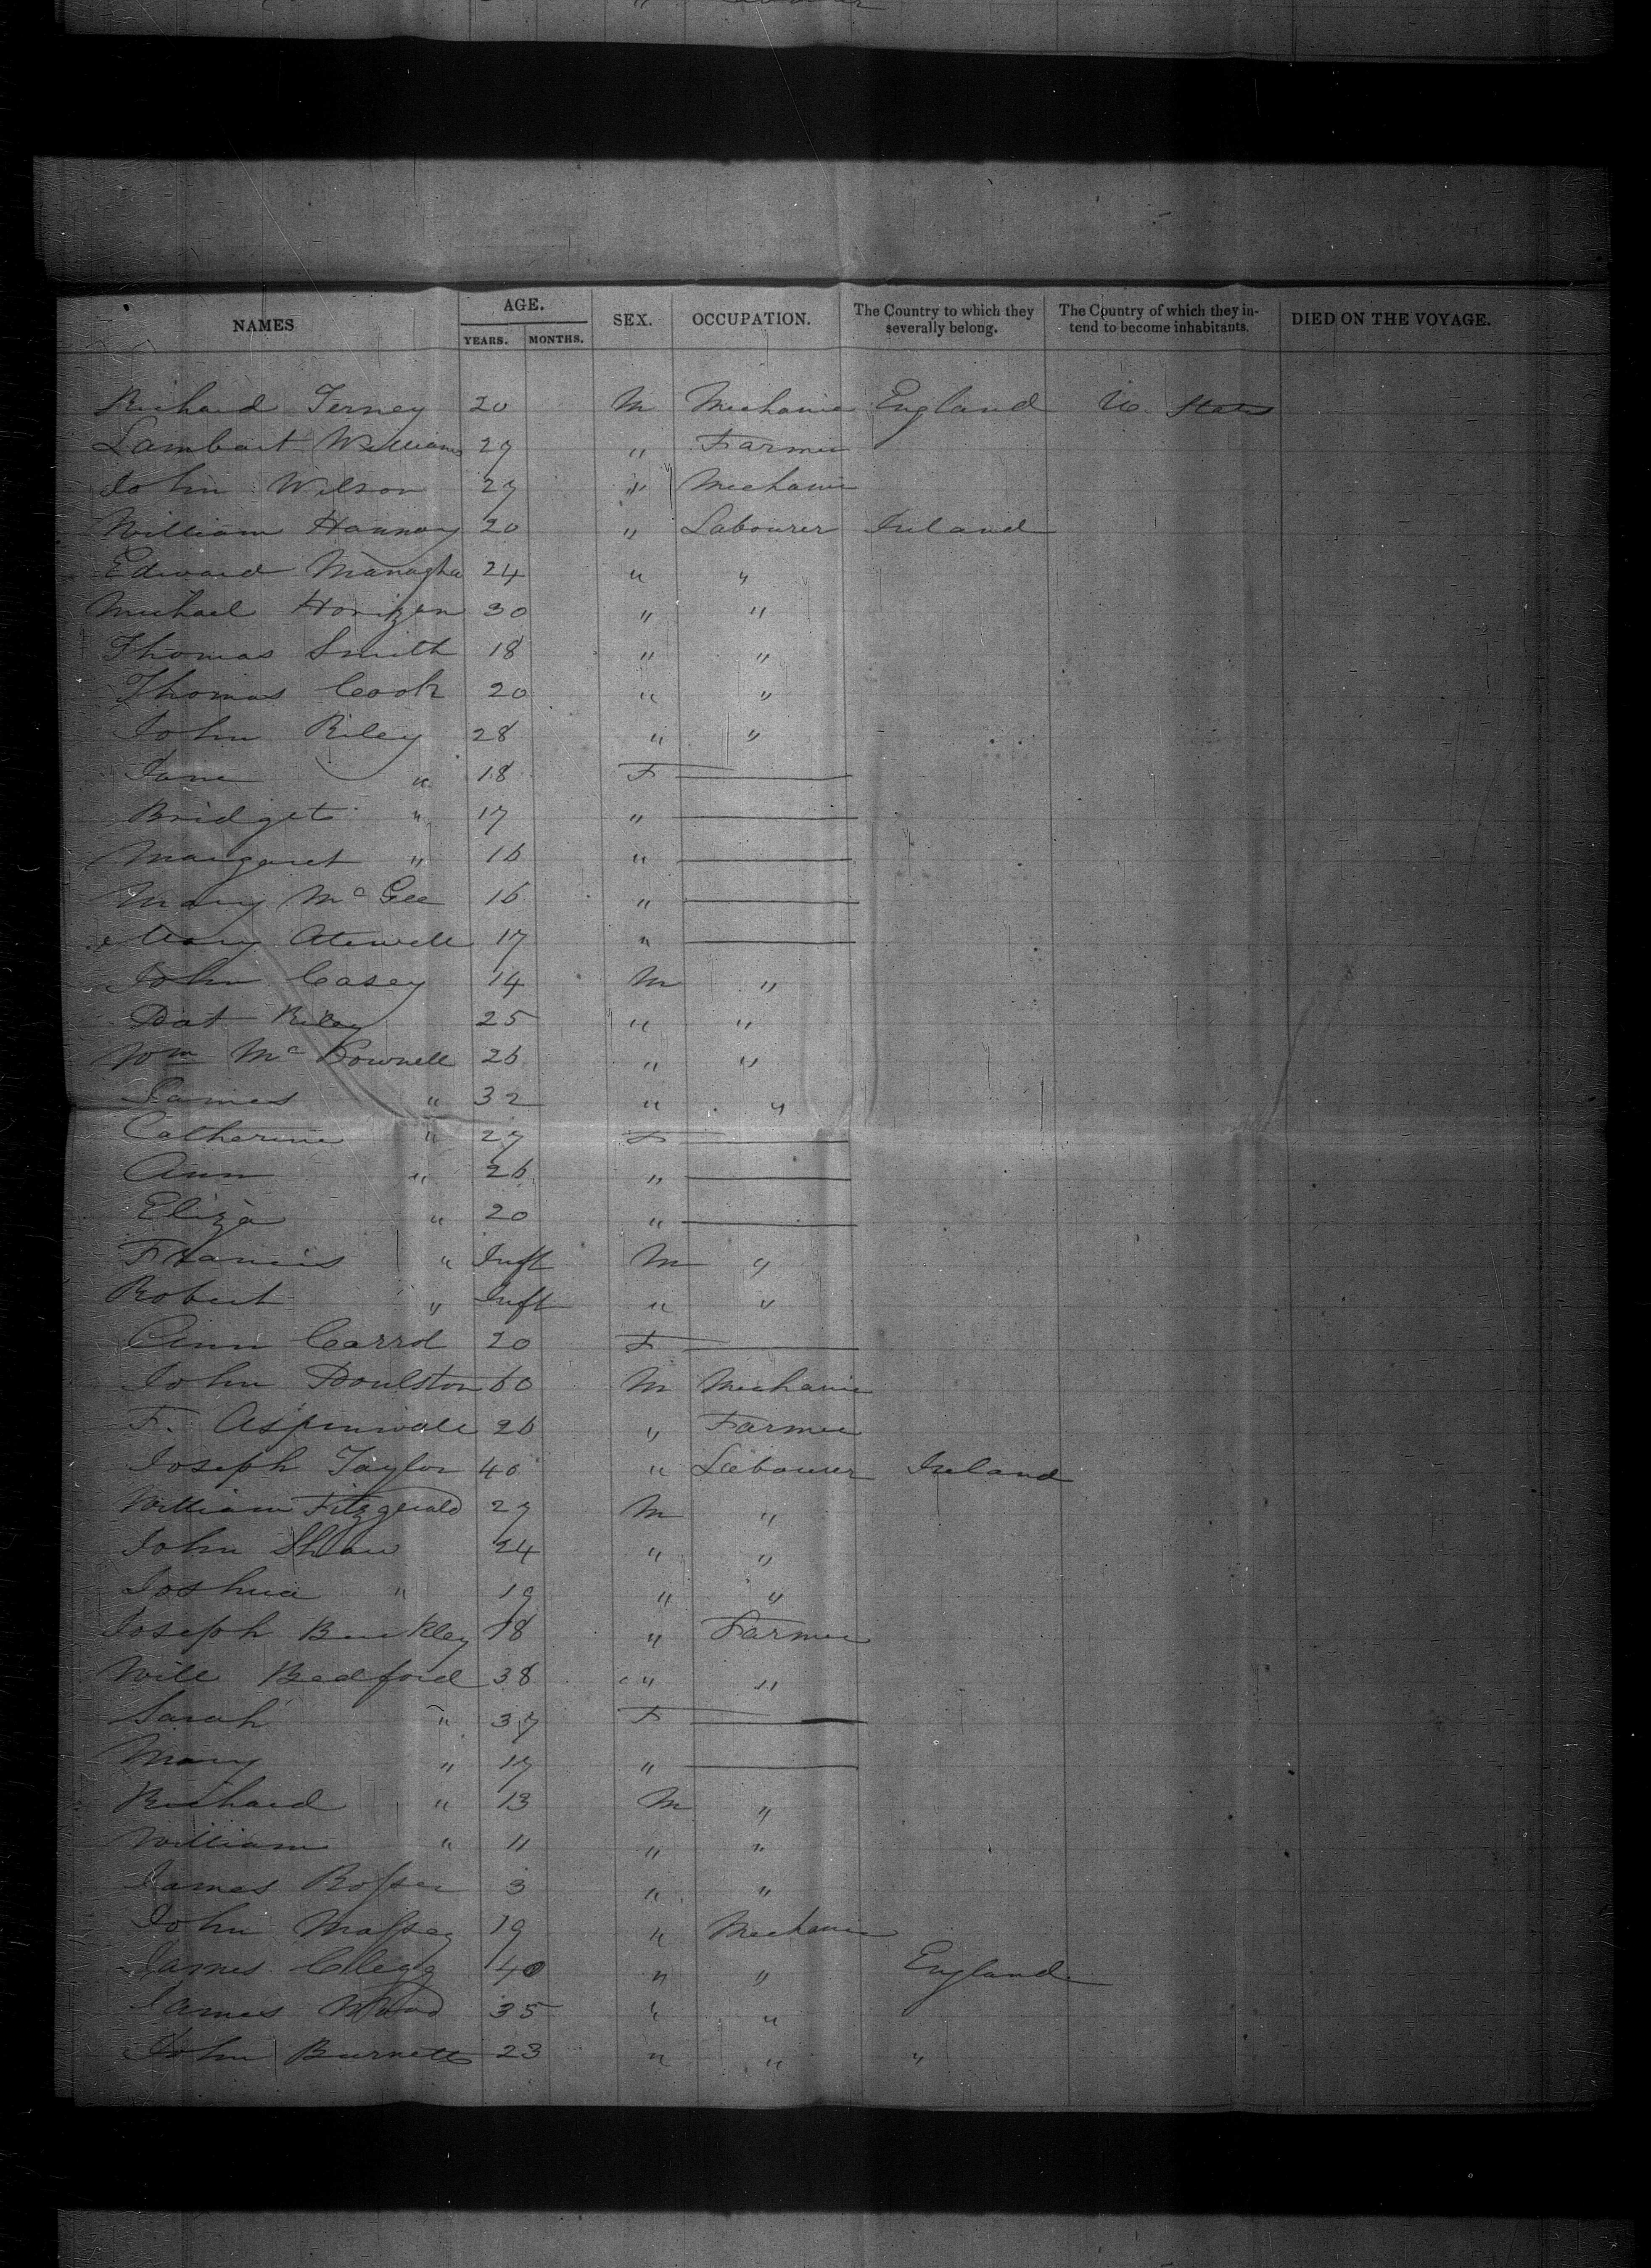 Labour
NAMES AGE. YEARS. MONTHS. SEX. OCCUPATION. The Country to which they severally belong. The Country of which they intend to become inhabitants. DIED ON THE VOYAGE.
Richard Terney 20 M Mechanic England U. States
Lambart Williams 27 " Farmer
John Wilson 27 " Mechanic
William Hannay 20 " Labourer Ireland
Edward 24 " "
Michael 30 " "
Thomas Smith 18 " "
Thomas Cook 20 " "
John Riley 28 " "
Jane " 18 F
Bridget " 17 "
Margaret " 16 "
Mary McGee 16 "
Mary Atewell 17 "
John Casey 14 M "
Pat Riley 25 " "
Wm McDownell 26 " "
James " 32 " "
Catherine " 27 F
Ann " 26 "
Eliza " 20 "
Francis " Inft M "
Robert " Inft " "
Ann Carrol 20 F
John Poulston 60 M Mechanic
F. Aspinwall 26 " Farmer
Joseph Taylor 40 " Labourer Ireland
William Fitzgerald 27 M "
John Shaw 24 " "
Joshua " 19 " "
Joseph Buckley 18 " Farmer
Will Bedford 38 " "
Sarah " 37 F
Mary " 17 "
Richard " 13 M "
William " 11 " "
James 3 " "
John Massey 19 " Mechanic
James Clegg 40 " " England
James 35 " "
John Burnett 23 " " "